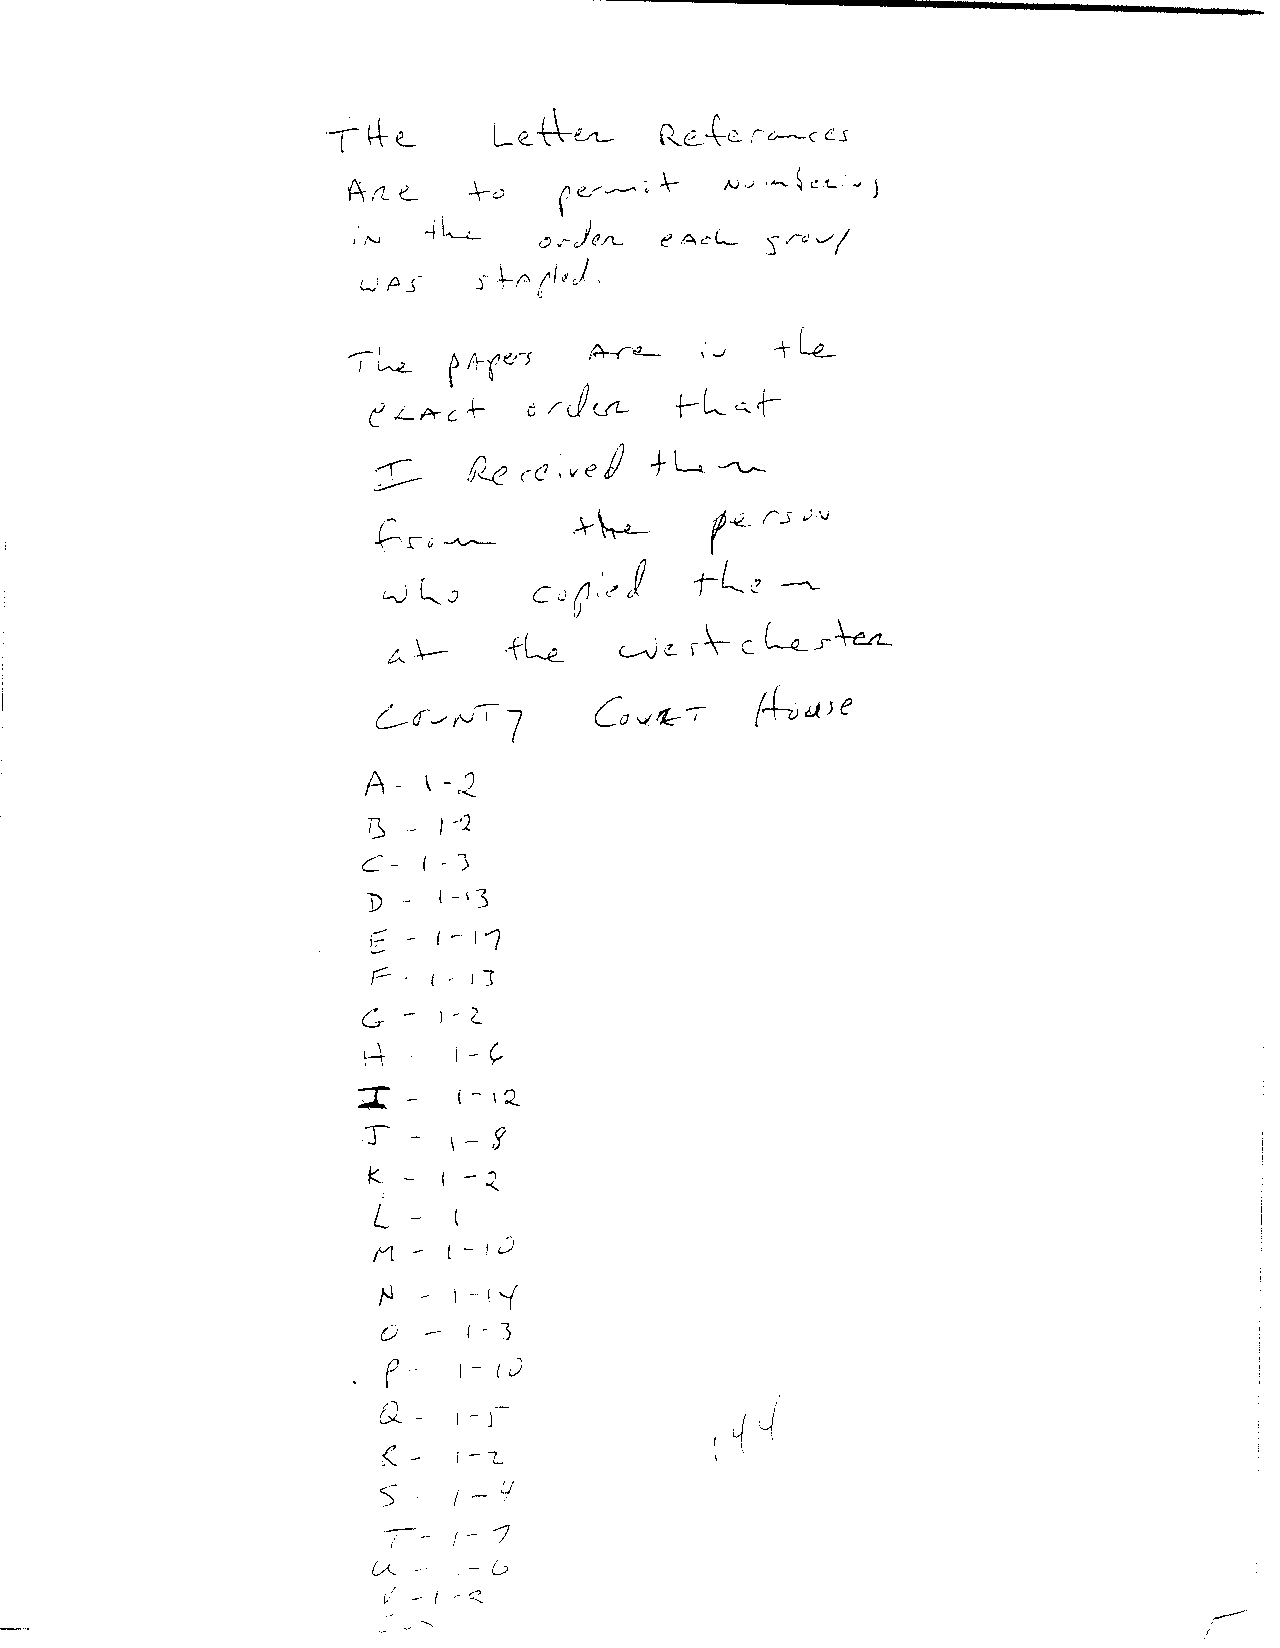 THe Letter References
Are to permit Numbering
in the order each group
was stapled.
The papers Are in the
exAct order that
I Received them
from the person
who copied them
at the westchester
COUNTY COURT House
A - 1-2
B - 1-2
C - 1-3
D - 1-13
E - 1-17
F - 1-13
G - 1-2
H - 1-6
I - 1-12
J - 1-8
K - 1-2
L - 1
M - 1-10
N - 1-14
O - 1-3
P - 1-10
Q - 1-5
R - 1-2
144
S - 1-4
T - 1-7
U - 1-6
V - 1-2